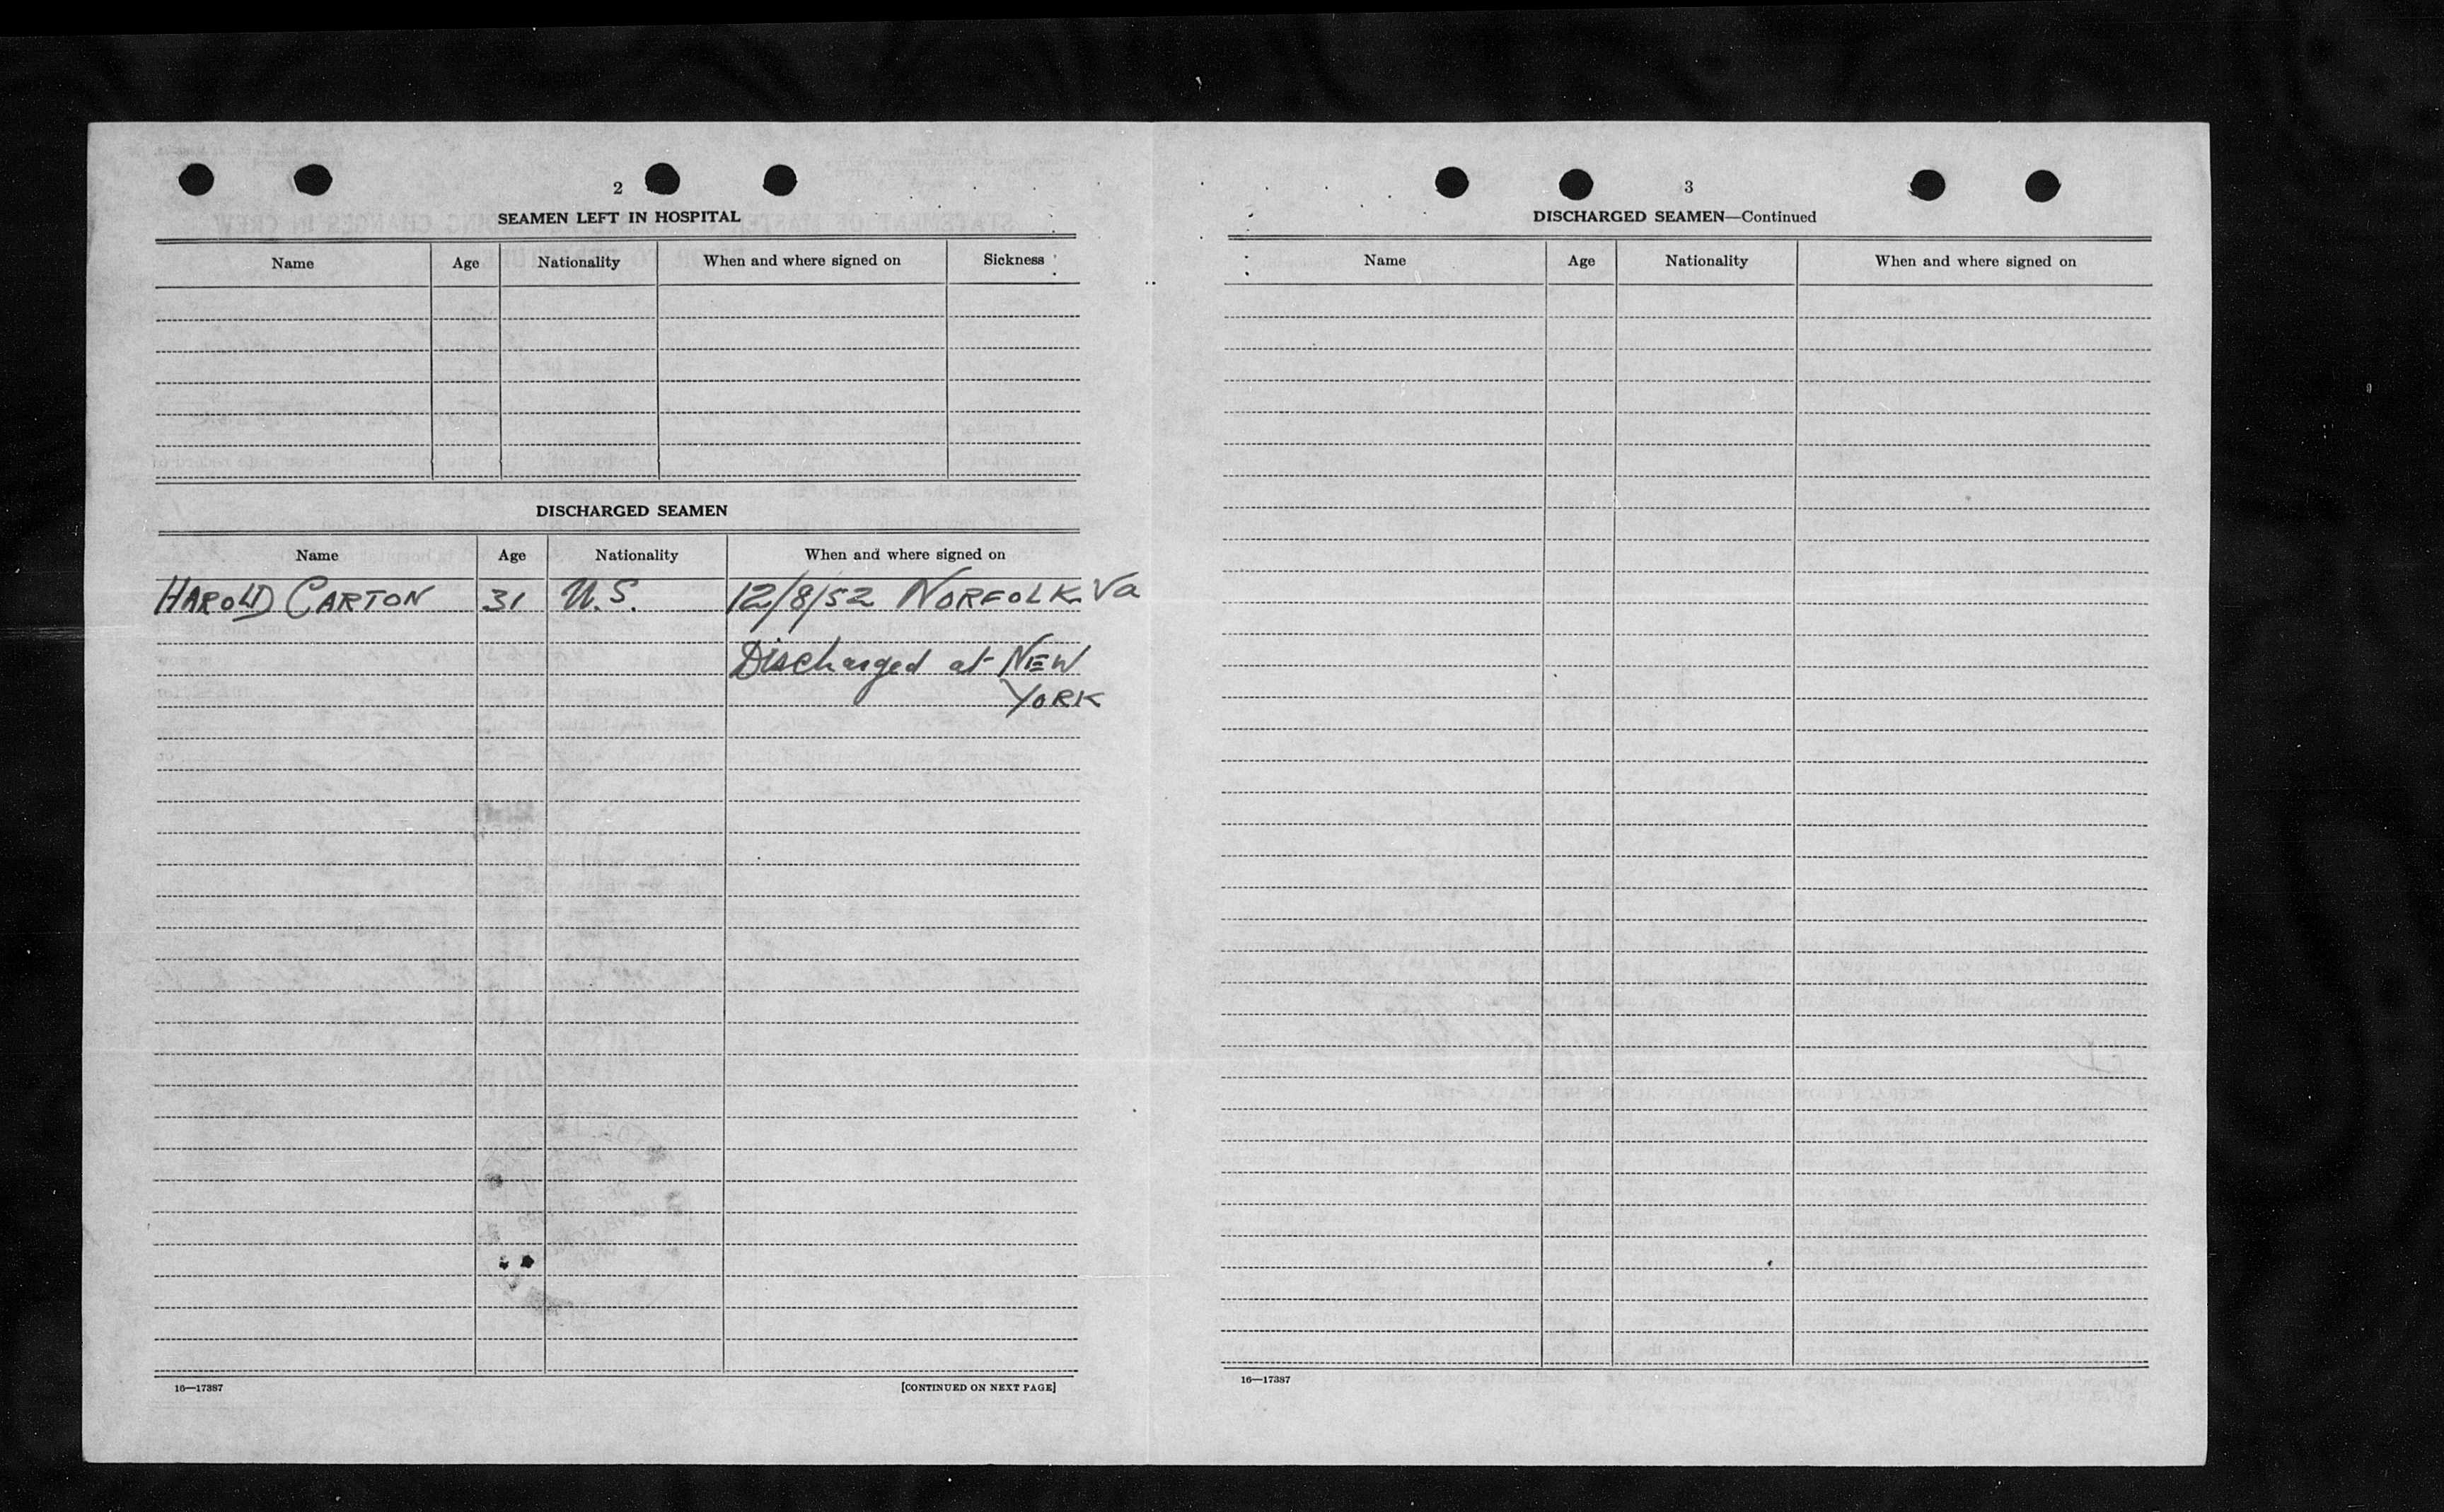 2
SEAMEN LEFT IN HOSPITAL
Name Age Nationality When and where signed on Sickness
DISCHARGED SEAMEN
Name Age Nationality When and where signed on
HAROLD CARTON 31 U.S. 12/8/52 NORFOLK. Va
Discharged at NEW
YORK
16—17387 [CONTINUED ON NEXT PAGE]
3
DISCHARGED SEAMEN—Continued
Name Age Nationality When and where signed on
16—17387